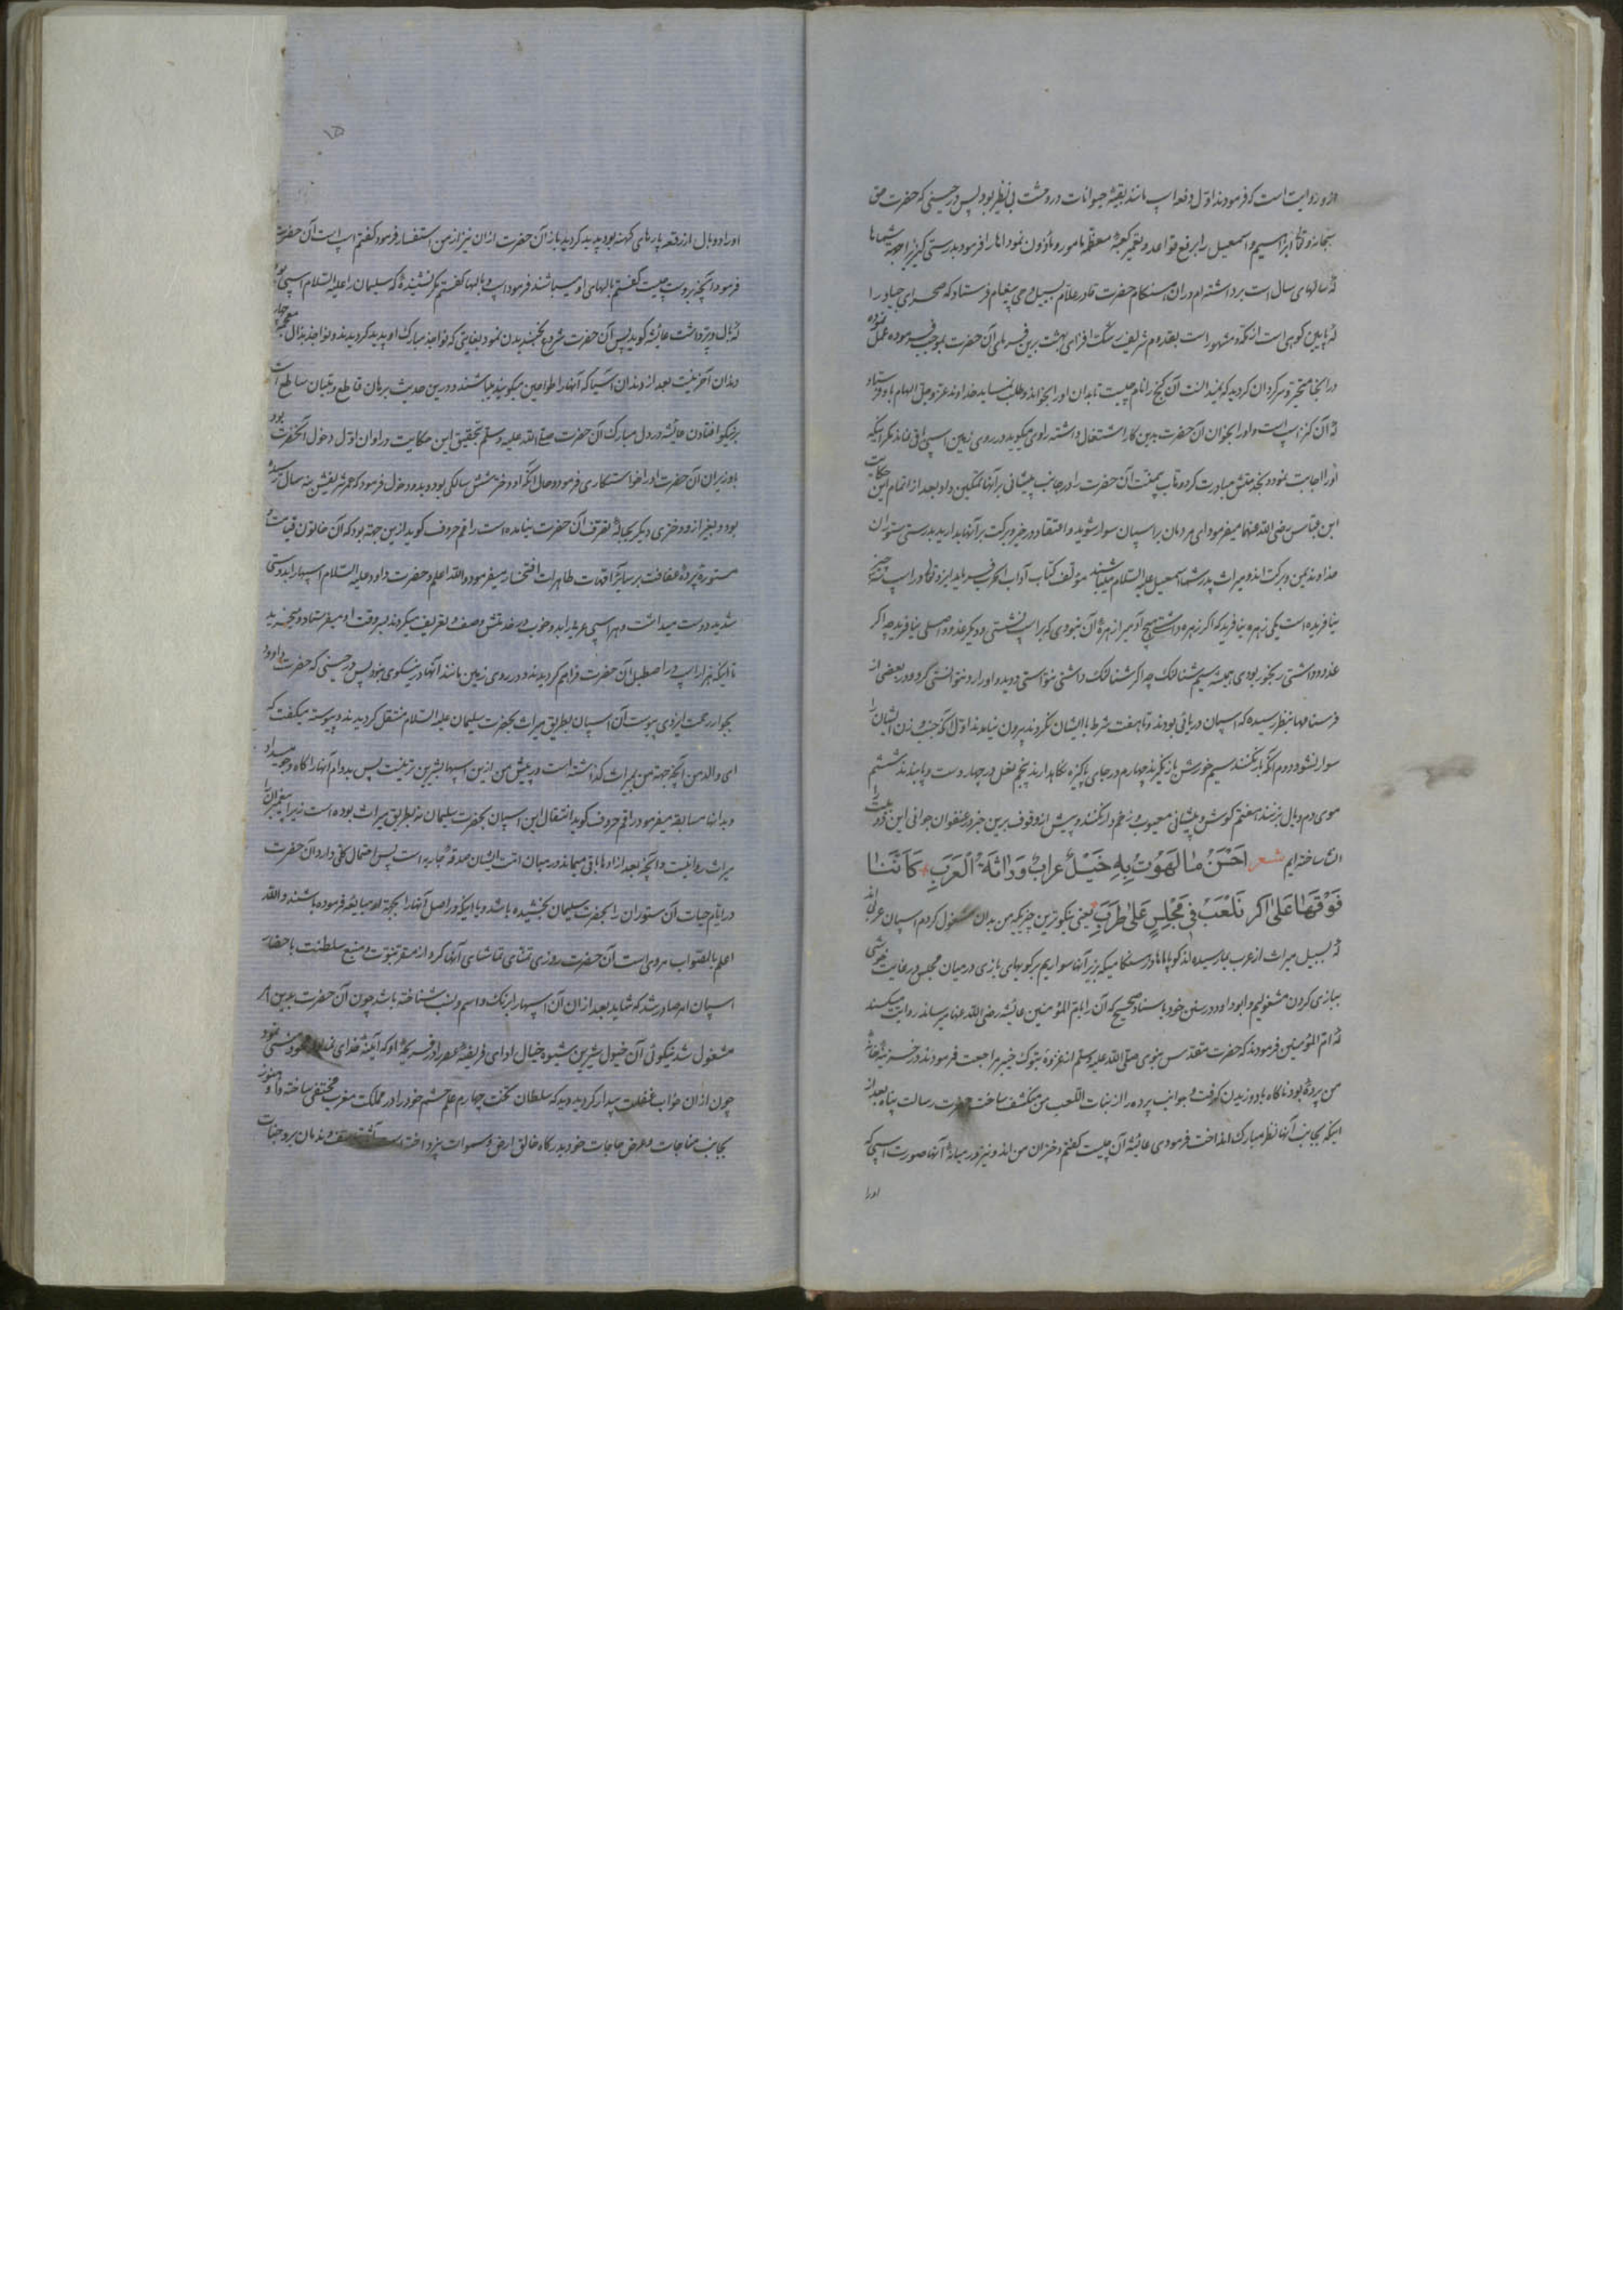 ازو روایت است که فرمودند اول دفعه اسپ مانند بقیهٔ حیوانات در وحشت بی نظیر بود پس در حینی که حضرت حق
سبحانه و تعالی ابراهیم و اسمعیل را برفع قواعد و تعمیر کعبهٔ معظمه مامور و ماذون نمود انها را فرمود بدرستی کنز را بجهة شماها
که سالهای سال است برداشته ام در ان هنگام حضرت قادر علام بسبیل وحی پیغام فرستاد که صحرای جیاد را
که پایین کوهی است از مکه و مشهور است بقدوم شریف رشگ افزای بهشت برین فرمای آن حضرت بموجب فرموده عمل نموده
در انجا متحیر و سرگردان گردید که نمیدانست آن گنج را نام چیست تا بدان او را بخواند و طلب نماید خداوند عز و جل الهام باو فرستاد
که آن کنز اسپ است و او را بخوان آن حضرت بدین کار اشتغال داشته راوی میگوید در روی زمین اسپی باقی نماند مگر اینکه
او را اجابت نمود و بخدمتش مبادرت کرد و آن حضرت را در جانب پیشانی بر آنها تمکین داد بعد از اتمام این حکایت
ابن عباس رضی الله عنهما میفرمود ای مردمان بر اسپان سوار شوید و اعتقاد در خیر و برکت بر آنها بدارید بدرستی ستوران
خداوند یمن و برکت اند و میراث پدر شما اسمعیل علیه السلام میباشند مؤلف کتاب آداب الحرب فرماید ایزد تعالی در اسپ سه چیز
نیافریده است یکی زهره نیافرید که اگر زهره داشتی هیچ آدمی از زهرهٔ آن نبودی که بر اسپ نشستی و دیگر غدود اصلی نیافرید چه اگر
غدود داشتی رنجور بودی همیشه سیم شتالنگ چه اگر شتالنگ داشتی نتوانستی دوید و او را رد نتوانستی کرد و در بعضی از
فرسنامها بنظر رسیده که اسپان دریائی بودند و تا هفت شرط با ایشان نکردند بیرون نیامدند اول آنکه جنب و زن ایشان را
سوار نشود دوم آنکه بار نکنند سیم خورش باز نگیرند چهارم در جای پاکیزه نگاهدارند پنجم نعل در چهار دست و پا بندند ششم
موی دم و یال نبرند هفتم گوش و پیشانی معیوب و زخم دار نکنند و پیش از وقوف برین خبر در عنفوان جوانی این دو بیت را
انشا ساخته ایم شعر اَحْسَنُ مٰا لَهَوْتُ بِهِ خَیْلٌ عِرابٌ وَرٰاثَةُ الْعَرَبِ کَاَنَّنٰا
فَوْقَهٰا عَلیٰ اُکَرٍ نَلْعَبُ فِی مَجْلِسٍ عَلیٰ طَرَبِ یعنی نیکوترین چیزیکه من بدان مشغول کردم اسپان عربی اند
که بسبیل میراث از عرب بما رسیده اند گویا ماها در هنگامیکه بزبر آنها سواریم بر گویهای بازی در میان مجلس در غایت خوشی
ببازی کردن مشغولیم و ابو داود در سنن خود با سناد صحیح که آن را بام المؤمنین عایشه رضی الله عنها میرساند روایت میکند
که ام المؤمنین فرمودند که حضرت مقدس نبوی صلی الله علیه وسلم از غزوهٔ تبوک خیبر مراجعت فرمودند و در خزینهٔ خانهٔ
من پردهٔ بود ناگاه باد وزیدن گرفت و جوانب پرده را از بنات اللعب من منکشف ساخت حضرت رسالت پناه بعد از
اینکه بجانب آنها نظر مبارک انداخت فرمود ای عایشه آن چیست گفتم دختران من اند و نیز در میانهٔ آنها صورت اسپی که
او را
۱۵
او را دو بال از رقعه پارهای کهنه بود پدید گردید باز آن حضرت ازان نیز از من استفسار فرمود گفتم اسپ است آن حضرت
فرمود آنچه بروست چیست گفتم بالهای او میباشند فرمود اسپ و بالها گفتم مگر نشنیدهٔ که سلیمان را علیه السلام اسپی بود
که بال و پر داشت عایشه گوید پس آن حضرت شروع بخندیدن نمود بغایتی که نواجذ مبارک او پدید گردیدند و نواجذ بذال معجمه چهار
دندان آخرینست بعد از دندان آسیا که آنها را طواحین میگویند میباشند و درین حدیث برهان قاطع و تبیان ساطع است
بر نیکو افتادن عایشه در دل مبارک آن حضرت صلی الله علیه وسلم تحقیق این حکایت در اوان اول دخول آنحضرت بود
باو زیرا آن حضرت او را خواستگاری فرمود و حال آنکه او دختر شش سالگی بود و بدو دخول فرمود که عمر شریفش بنه سال رسیده
بود و بغیر از و دختری دیگر بحبالهٔ تصرف آن حضرت نیامده است راقم حروف گوید ازین جهة بود که آن خاتون قیامت و
مستورهٔ پردهٔ عفافت بر سایر امهات طاهرات افتخار میفرمود والله اعلم و حضرت داود علیه السلام اسپها را بدوستی
شدید دوست میداشت و هر اسپی عربی را بد و خوب در خدمتش وصف و تعریف میکردند بسر وقت او میفرستاد و میخرید
تا اینکه هزار اسپ در اصطبل آن حضرت فراهم گردیدند و در روی زمین مانند آنها در نیکوی نبود پس در حینی که حضرت داود
بجوار رحمت ایزدی پیوست آن اسپان بطریق میراث بحضرت سلیمان علیه السلام منتقل گردیدند و پیوسته میگفت که
ای والد من آنچه جهة من بمیراث گذاشته است در پیش من ازین اسپها بشیرین تر نیست پس بدوام آنها را کاه و جو میداد
و بدانها مسابقه میفرمود راقم حروف گوید انتقال این اسپان بحضرت سلیمان نه بطریق میراث بوده است زیرا پیغمبران را
میراث روا نیست و آنچه بعد از آنها باقی میماند در میان امت ایشان صدقهٔ جاریه است پس احتمال کلی دارد آن حضرت
در ایام حیات آن ستوران را بحضرت سلیمان بخشیده باشد و یا اینکه در اصل آنها را بجهة او مبایعه فرموده باشند والله
اعلم بالصواب مروی است آن حضرت روزی تمنای تماشای آنها کرد از مقر نبوت و منبع سلطنت باحضار
اسپان امر صادر شد که شاید بعد ازان آن اسپها را برنگ و اسم و نسب شناخته باشد چون آن حضرت بدین امر
مشغول شد نیکوئی آن خیول شیرین شیوه خیال ادای فریضهٔ عصر را از
چون ازان خواب غفلت بیدار گردید دید که سلطان تخت چهارم علم حشم خود را در مملکت مغرب مختفی ساخته و او هنوز
بجانب مناجات و عرض حاجات خود بدرگاه خالق ارض و سموات نپرداخته است